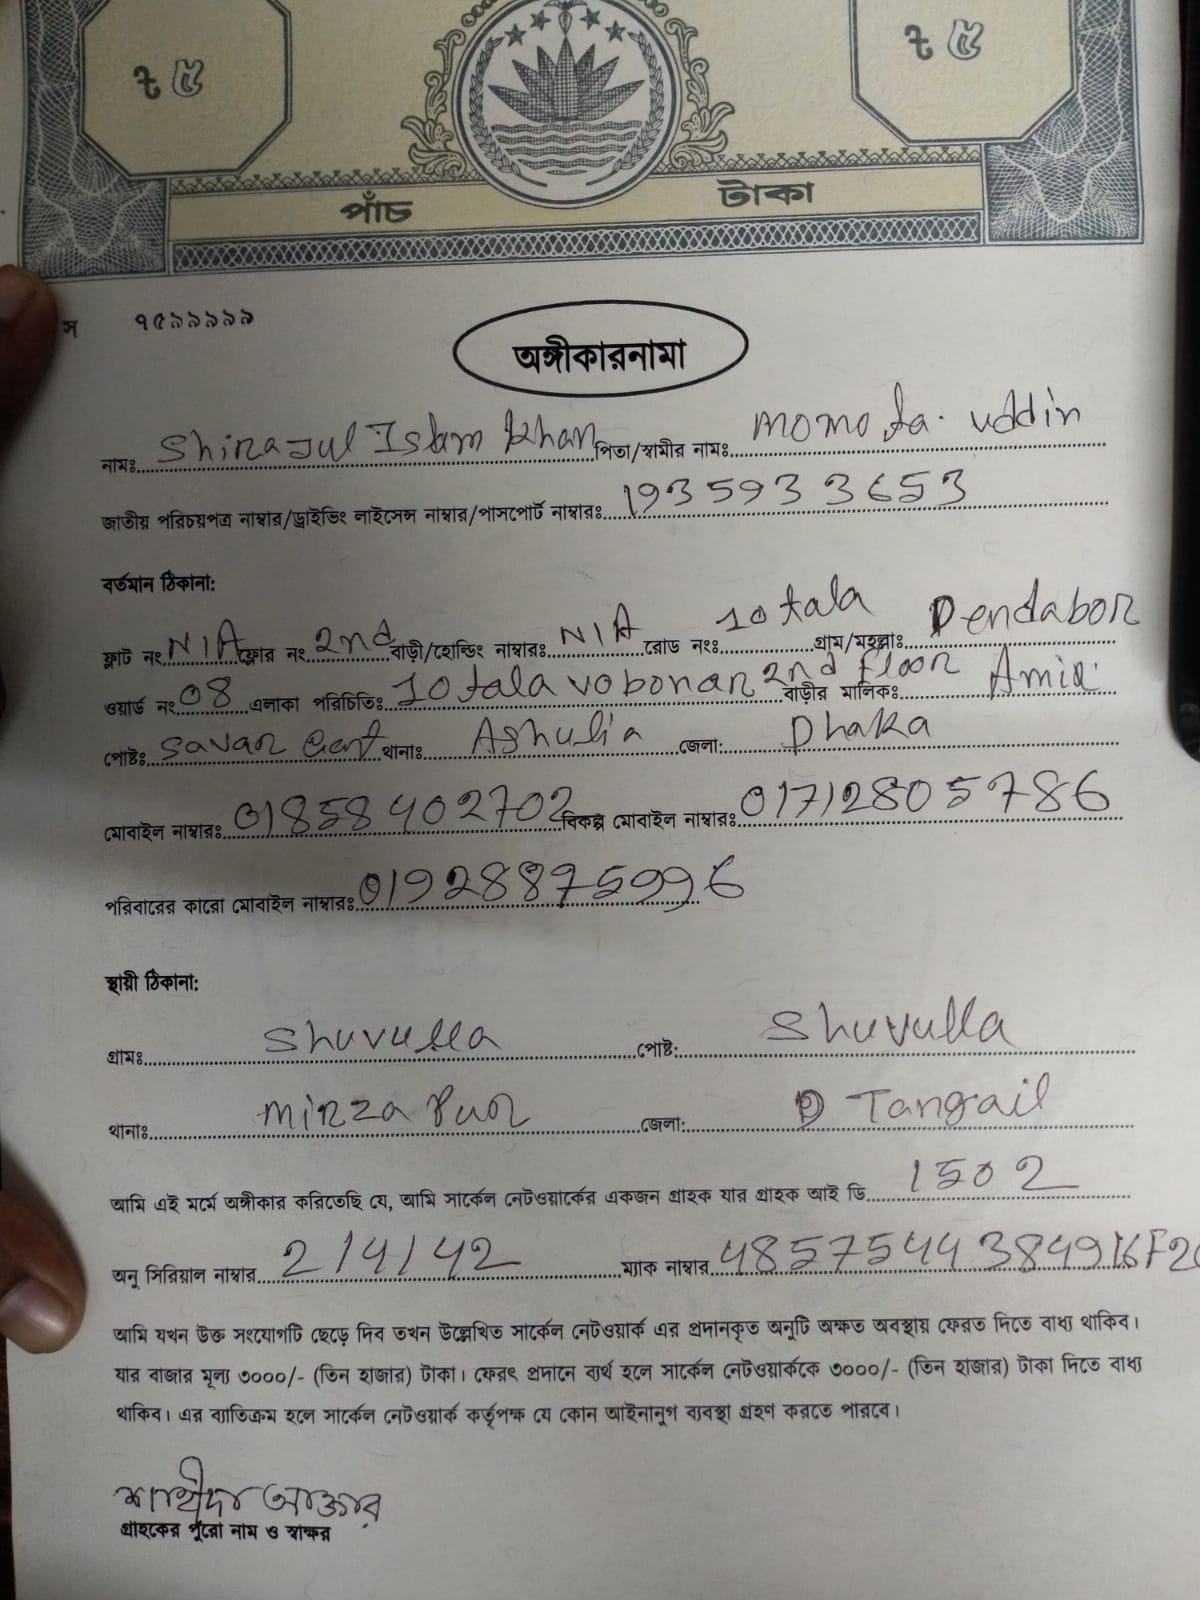 ৳ ৫ ৳ ৫
পাঁচ টাকা
স ৭৫৯৯৯৯৯
অঙ্গীকারনামা
নামঃ Shirajul Islam Khan পিতা/স্বামীর নামঃ momota. uddin
জাতীয় পরিচয়পত্র নাম্বার/ড্রাইভিং লাইসেন্স নাম্বার/পাসপোর্ট নাম্বারঃ 1935933653
বর্তমান ঠিকানা:
ফ্লাট নং N/A ফ্লোর নং 2nd বাড়ী/হোল্ডিং নাম্বারঃ N/A রোড নং: 10 tala গ্রাম/মহল্লাঃ Dendabor
ওয়ার্ড নং 08 এলাকা পরিচিতিঃ 10 tala vobonar 2nd floor বাড়ীর মালিকঃ Amir
পোষ্টঃ Savar Cent থানাঃ Ashulia জেলা: Dhaka
মোবাইল নাম্বারঃ 01858402702 বিকল্প মোবাইল নাম্বারঃ 01712805786
পরিবারের কারো মোবাইল নাম্বারঃ 01928875996
স্থায়ী ঠিকানা:
গ্রামঃ Shuvulla পোষ্ট: Shuvulla
থানাঃ Mirza Pur জেলা: Tangail
আমি এই মর্মে অঙ্গীকার করিতেছি যে, আমি সার্কেল নেটওয়ার্কের একজন গ্রাহক যার গ্রাহক আই ডি 1502
অনু সিরিয়াল নাম্বার 2/4/42 ম্যাক নাম্বার
আমি যখন উক্ত সংযোগটি ছেড়ে দিব তখন উল্লেখিত সার্কেল নেটওয়ার্ক এর প্রদানকৃত অনুটি অক্ষত অবস্থায় ফেরত দিতে বাধ্য থাকিব।
যার বাজার মূল্য ৩০০০/- (তিন হাজার) টাকা। ফেরৎ প্রদানে ব্যর্থ হলে সার্কেল নেটওয়ার্ককে ৩০০০/- (তিন হাজার) টাকা দিতে বাধ্য
থাকিব। এর ব্যতিক্রম হলে সার্কেল নেটওয়ার্ক কর্তৃপক্ষ যে কোন আইনানুগ ব্যবস্থা গ্রহণ করতে পারবে।
শাহীদা আক্তার
গ্রাহকের পুরো নাম ও স্বাক্ষর